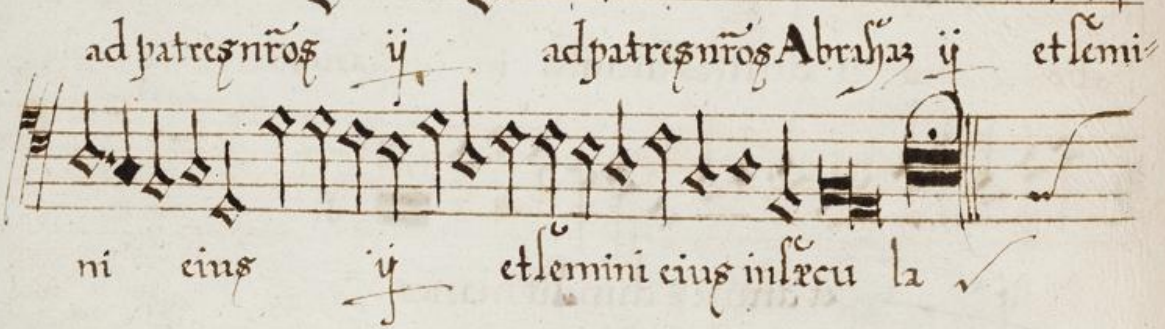 ad patres nr̃os ij ad patres nr̃os Abrahaʒ ij et sẽmi-
ni eius ij et sẽmini eius in sæcu la